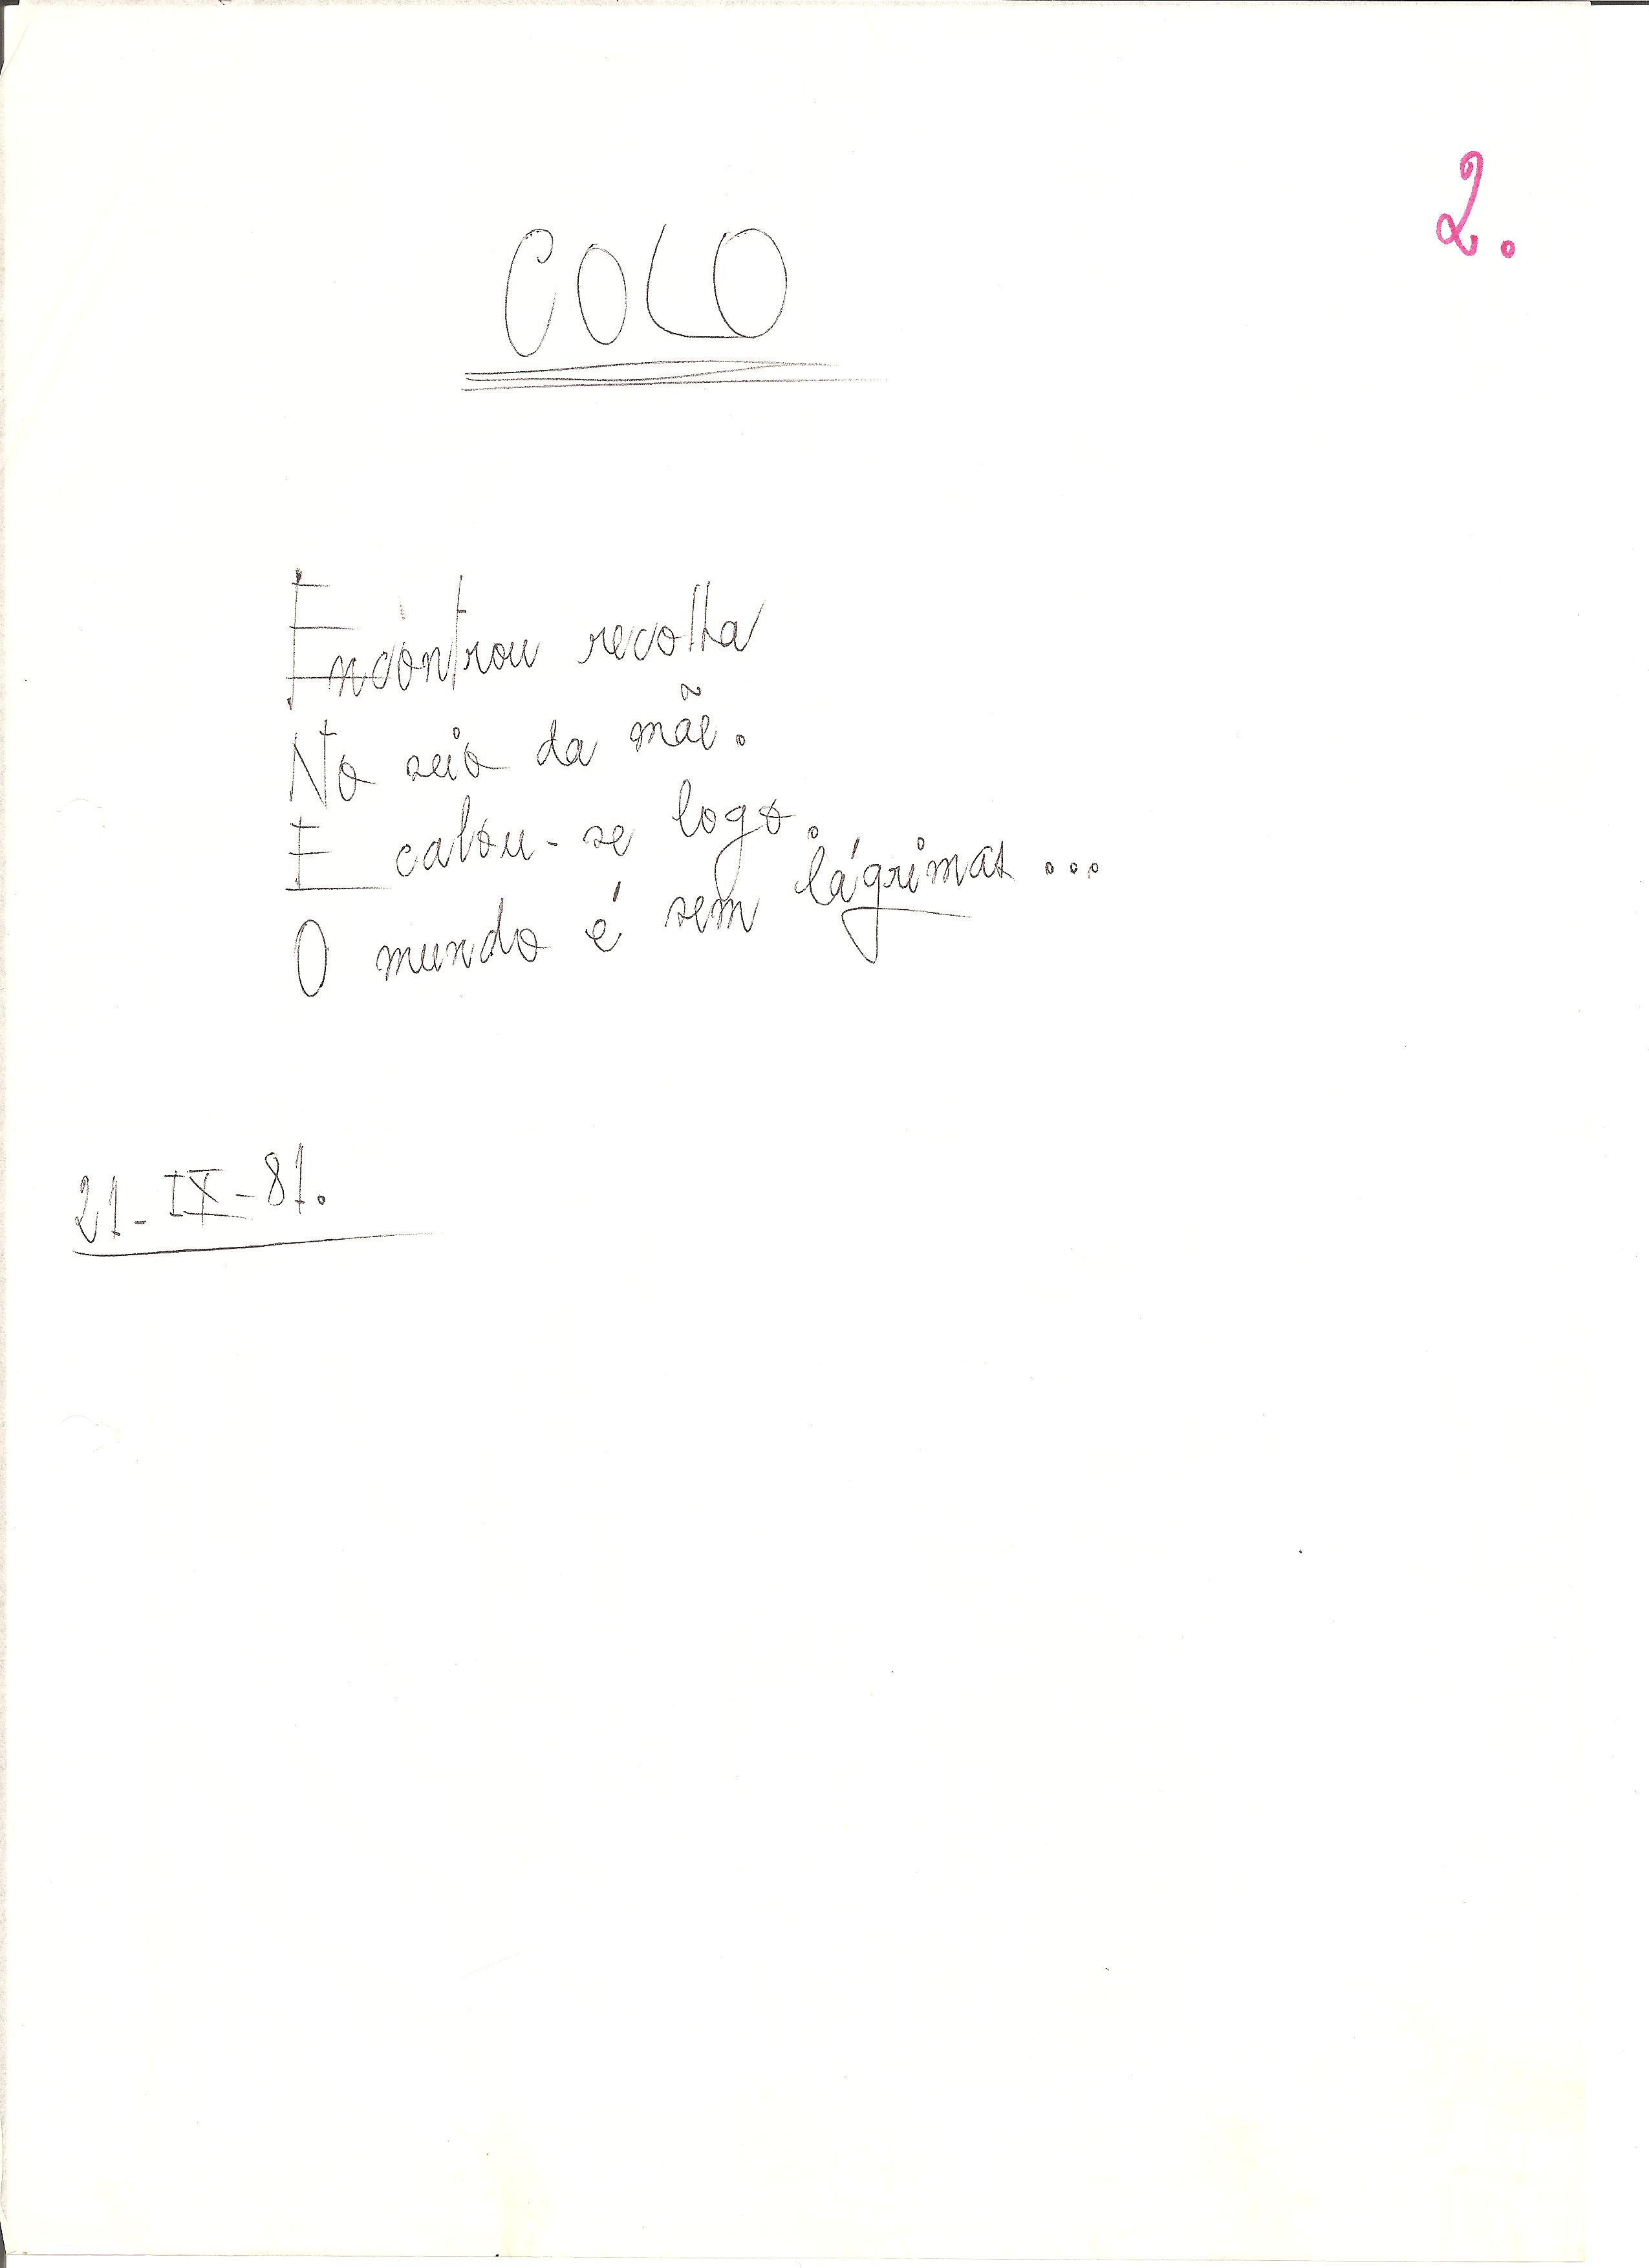 2.
COLO
Encontrou recolha
No seio da mãe.
E calou-se logo.
O mundo é sem lágrimas...
21-IX-81.